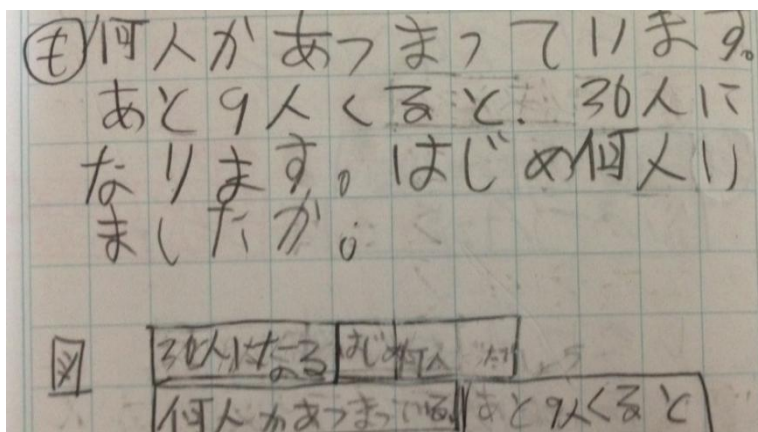 も 何人があつまっています。
あと9人くると、30人に
なります。はじめ何人い
ましたか。
図 30人になる はじめ何人
何人があつまっている。 あと9人くると